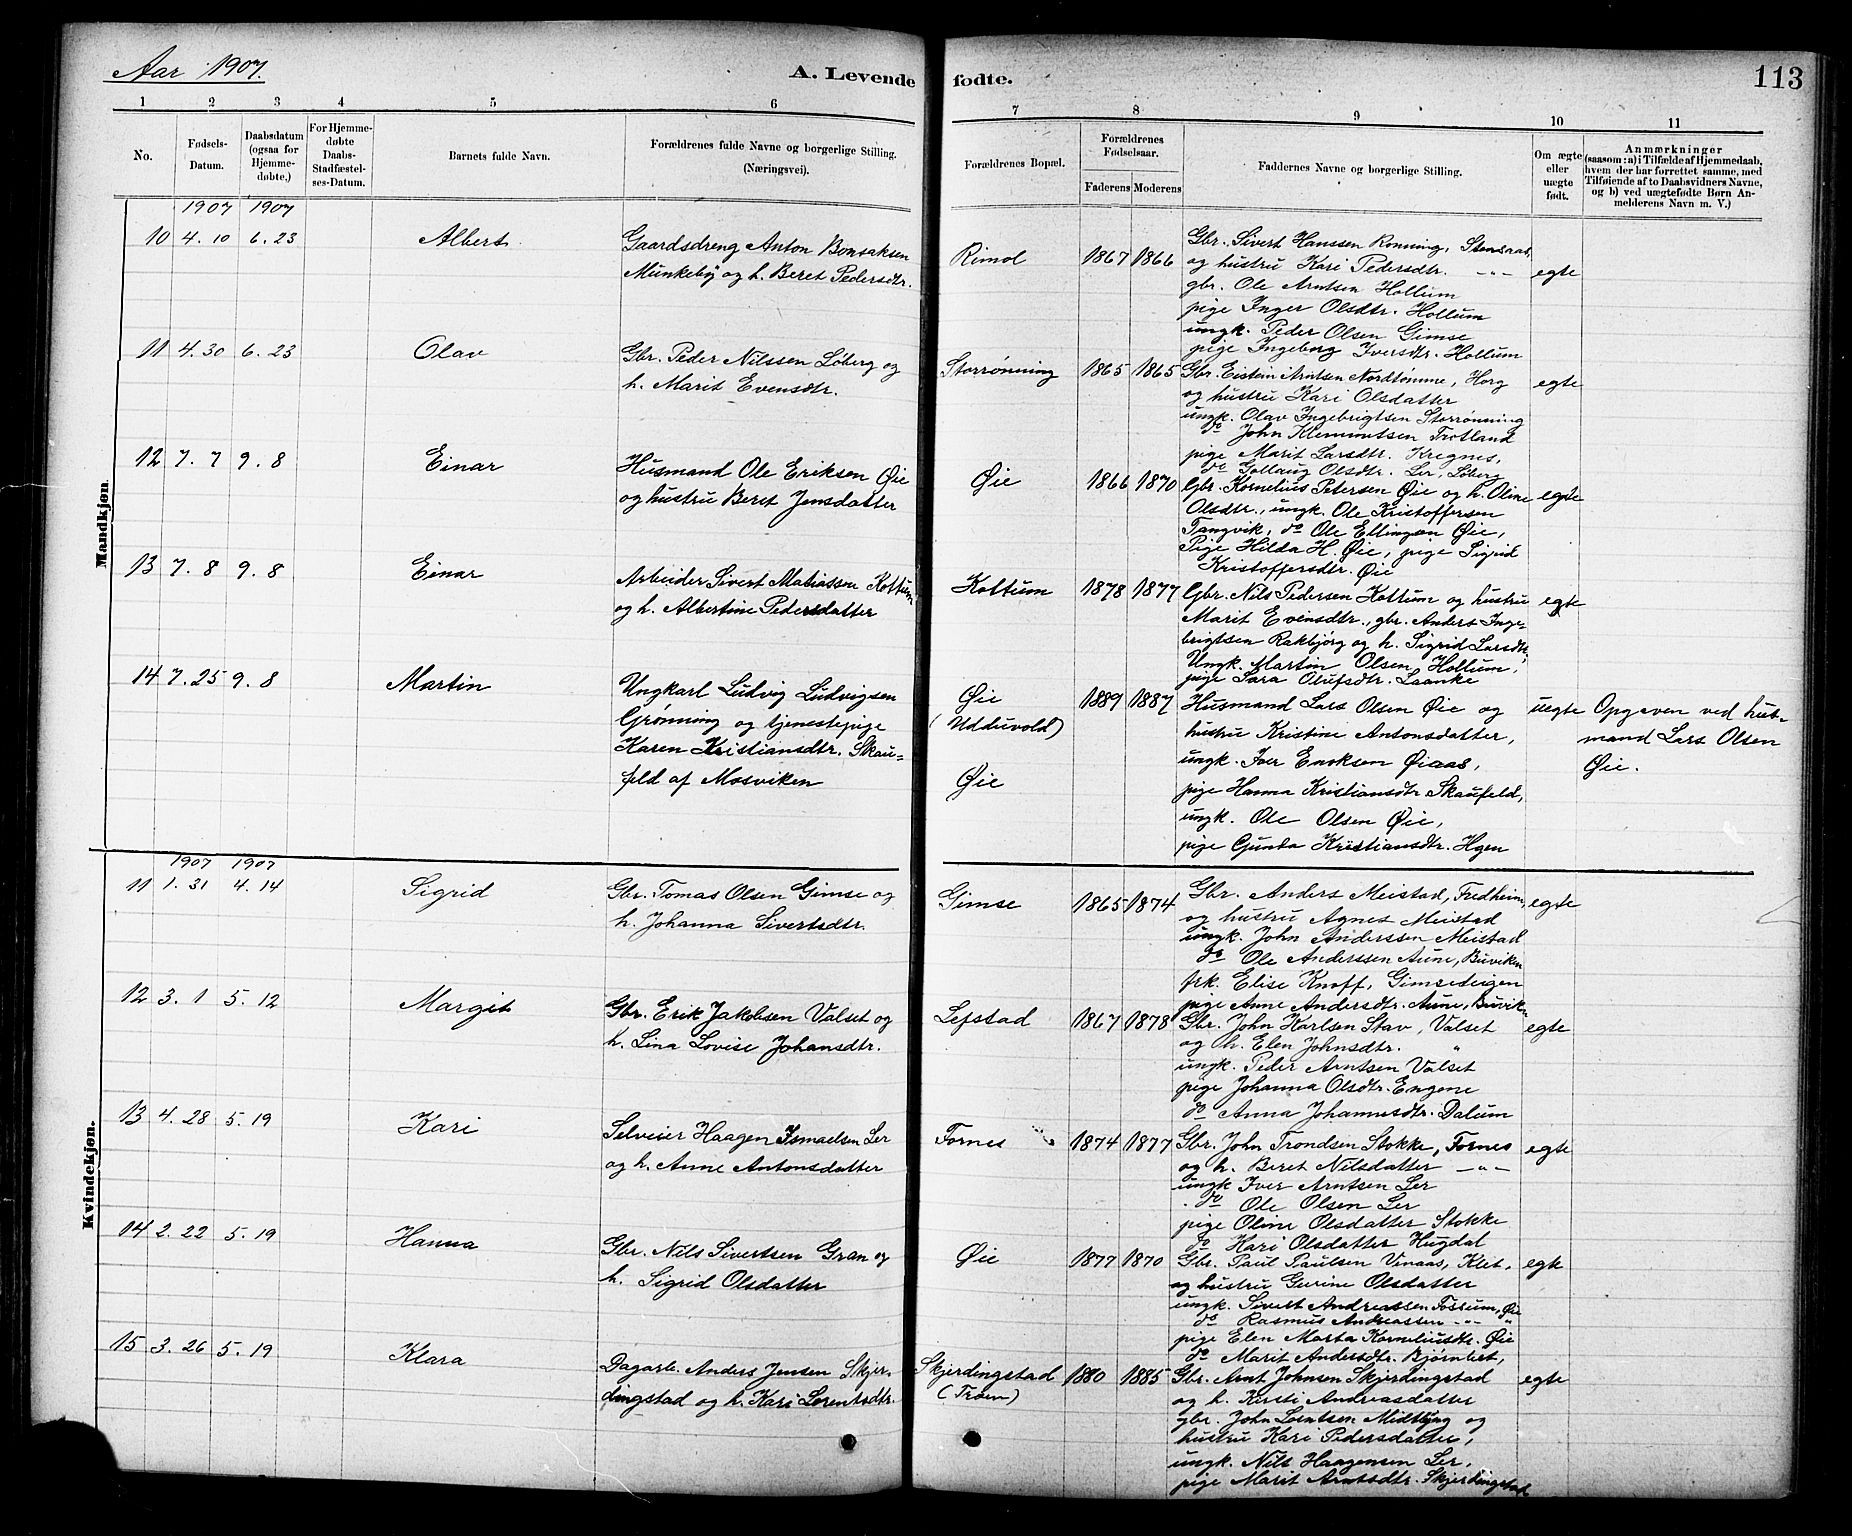 Aar 1907.
A. Levende fødte.
113
1 2 3 4 5 6 7 8 9 10 11
No.
Fødsels-
Datum.
Daabsdatum
(ogsaa for
Hjemme-
døbte.)
For Hjemme-
døbte
Daabs-
Stadfæstel-
ses-Datum.
Barnets fulde Navn.
Forældrenes fulde Navne og borgerlige Stilling.
(Næringsvei).
Forældrenes Bopæl.
Forældrenes
Fødselsaar.
Faderens Moderens
Faddernes Navne og borgerlige Stilling.
Om ægte
eller
uægte
født.
Anmærkninger
(saasom: a) i Tilfælde af Hjemmedaab,
hvem der har forrettet samme, med
Tilføiende af to Daabsvidners Navne,
og b) ved uægtefødte Børn An-
melderens Navn m. V.)
Mandkjøn.
1907 1907
10 4. 10 6. 23 Albert
Gaardsdreng Anton Bonsaksen
Munkeby og h. Beret Pedersdtr.
Rimol 1867 1866
Gbr. Sivert Hanssen Rønning, Stensaas,
og hustru Kari Pedersdtr. -"-
gbr. Ole Arntsen Hollum
pige Inger Olsdtr. Hollum
ungk. Peder Olsen Gimse
pige Ingeborg Iversdtr. Hollum
egte
11 4. 30 6. 23 Olav
Gbr. Peder Nilssen Løberg og
h. Marit Evensdtr.
Storrønning 1865 1865
Gbr. Eistein Arntsen Nordtømme, Horg
og hustru Kari Olsdatter
ungk. Olav Ingebrigtsen Storrønning
do John Klemmetsen Trotland
pige Marit Larsdtr. Kregnes,
do Gollaug Olsdtr. Ler, Løberg
egte
12 7. 7 9. 8 Einar
Husmand Ole Eriksen Øie
og hustru Beret Jensdatter
Øie 1866 1870
Gbr. Kornelius Petersen Øie og h. Oline
Olsdtr., ungk. Ole Kristoffersen
Tangvik, do Ole Ellingsen Øie,
Pige Hilda H. Øie, pige Sigrid
Kristoffersdtr. Øie
egte
13 7. 8 9. 8 Einar
Arbeider Sivert Matiassen Kottum
og h. Albertine Pedersdatter
Kottum 1878 1877
Gbr. Nils Pedersen Kottum og hustru
Marit Evensdtr., gbr. Anders Inge-
brigtsen Rakbjørg og h. Sigrid Larsdtr.,
Ungk. Martin Olsen Hollum,
pige Sara Olufsdtr. Laanke
egte
14 7. 25 9. 8 Martin
Ungkarl Ludvig Ludvigsen
Grønning og tjenestepige
Karen Kristiansdtr. Skau-
feld af Mosviken
Øie
(Udduvold)
Øie
1889 1887
Husmand Lars Olsen Øie og
hustru Kristine Antonsdatter,
ungk. Iver Eriksen Øiaas,
pige Hanna Kristiansdtr Skaufeld,
ungk. Ole Olsen Øie,
pige Gunda Kristiansdtr. Hgen
uegte
Opgaven ved hus-
mand Lars Olsen
Øie.
Kvindekjøn.
1907 1907
11 1. 31 4. 14 Sigrid
Gbr. Tomas Olsen Gimse og
h. Johanna Sivertsdtr.
Gimse 1865 1874
Gbr. Anders Meistad, Fredheim,
og hustru Agnes Meistad
ungk. John Anderssen Meistad
do Ole Anderssen Aune, Buviken
frk. Elise Knoff, Gimsedeigen
pige Anne Andersdtr. Aune, Buvik-
egte
12 3. 1 5. 12 Margit
Gbr. Erik Jakobsen Valset og
h. Lina Lovise Johansdtr.
Lefstad 1867 1878
Gbr. John Karlsen Stav, Valset
og h. Elen Johnsdtr. "
ungk. Peder Arntsen Valset
pige Johanna Olsdtr. Engene
do Anna Johannesdtr. Dalum
egte
13 4. 28 5. 19 Kari
Selveier Haagen Ismaelsen Ler
og h. Anne Antonsdatter
Fornes 1874 1877
Gbr. John Trondsen Stokke, Fornes
og h. Beret Nilsdatter -"-
ungk Iver Arntsen Ler
do Ole Olsen Ler
pige Oline Olsdatter Stokke
do Kari Olsdatter Hugdal
egte
14 2. 22 5. 19 Hanna
Gbr. Nils Sivertsen Gran og
h. Sigrid Olsdatter
Øie 1877 1870
Gbr. Paul Paulsen Vinaas, Klet,
og hustru Gurine Olsdatter
ungk. Sivert Andreassen Fossum, Øie
do Rasmus Andreassen -"- "
pige Elen Marta Korneliusdtr. Øie
do Marit Andersdtr. Bjørnbet,
egte
15 3. 26 5. 19 Klara
Dagarb. Anders Jensen Skjer-
dingstad og h. Kari Lorentsdtr.
Skjerdingstad
(Trøen)
1880 1885
Gbr. Arnt Johnsen Skjerdingstad
og h. Kirsti Andreasdatter
gbr. John Lorntsen Midtlyng og
hustru Kari Pedersdatter,
ungk. Nils Haagensen Ler,
pige Marit Arntsdtr. Skjerdingstad
egte